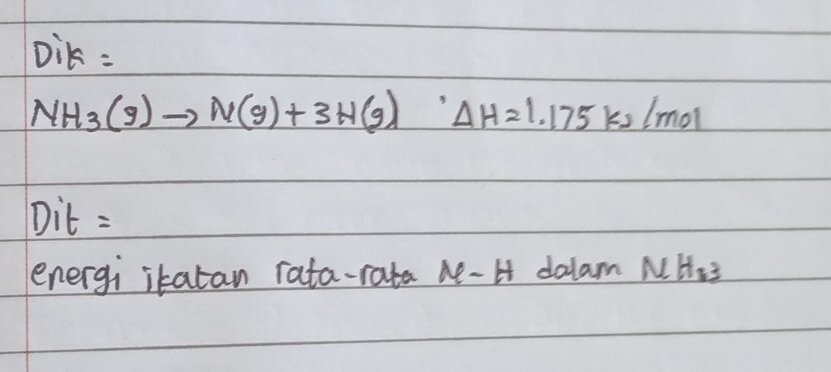 Dik =
NH3(g) → N(g) + 3H(g) ΔH = 1.175 kJ/mol
Dit =
energi ikatan rata-rata N-H dalam NH3